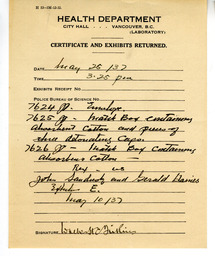 HEALTH DEPARTMENT
CITY HALL - - VANCOUVER, B.C.
(LABORATORY)
CERTIFICATE AND EXHIBITS RETURNED.
DATE May 25/37
TIME 3.25 pm
EXHIBITS RECEIPT NO.
POLICE BUREAU OF SCIENCE NO.
7624 P. Envelope
7625 P. Match Box containing
absorbent cotton and pieces of
7626 P. Match Box containing
absorbent cotton
Rex vs
John and Gerald
E.
May 10/37
SIGNATURE